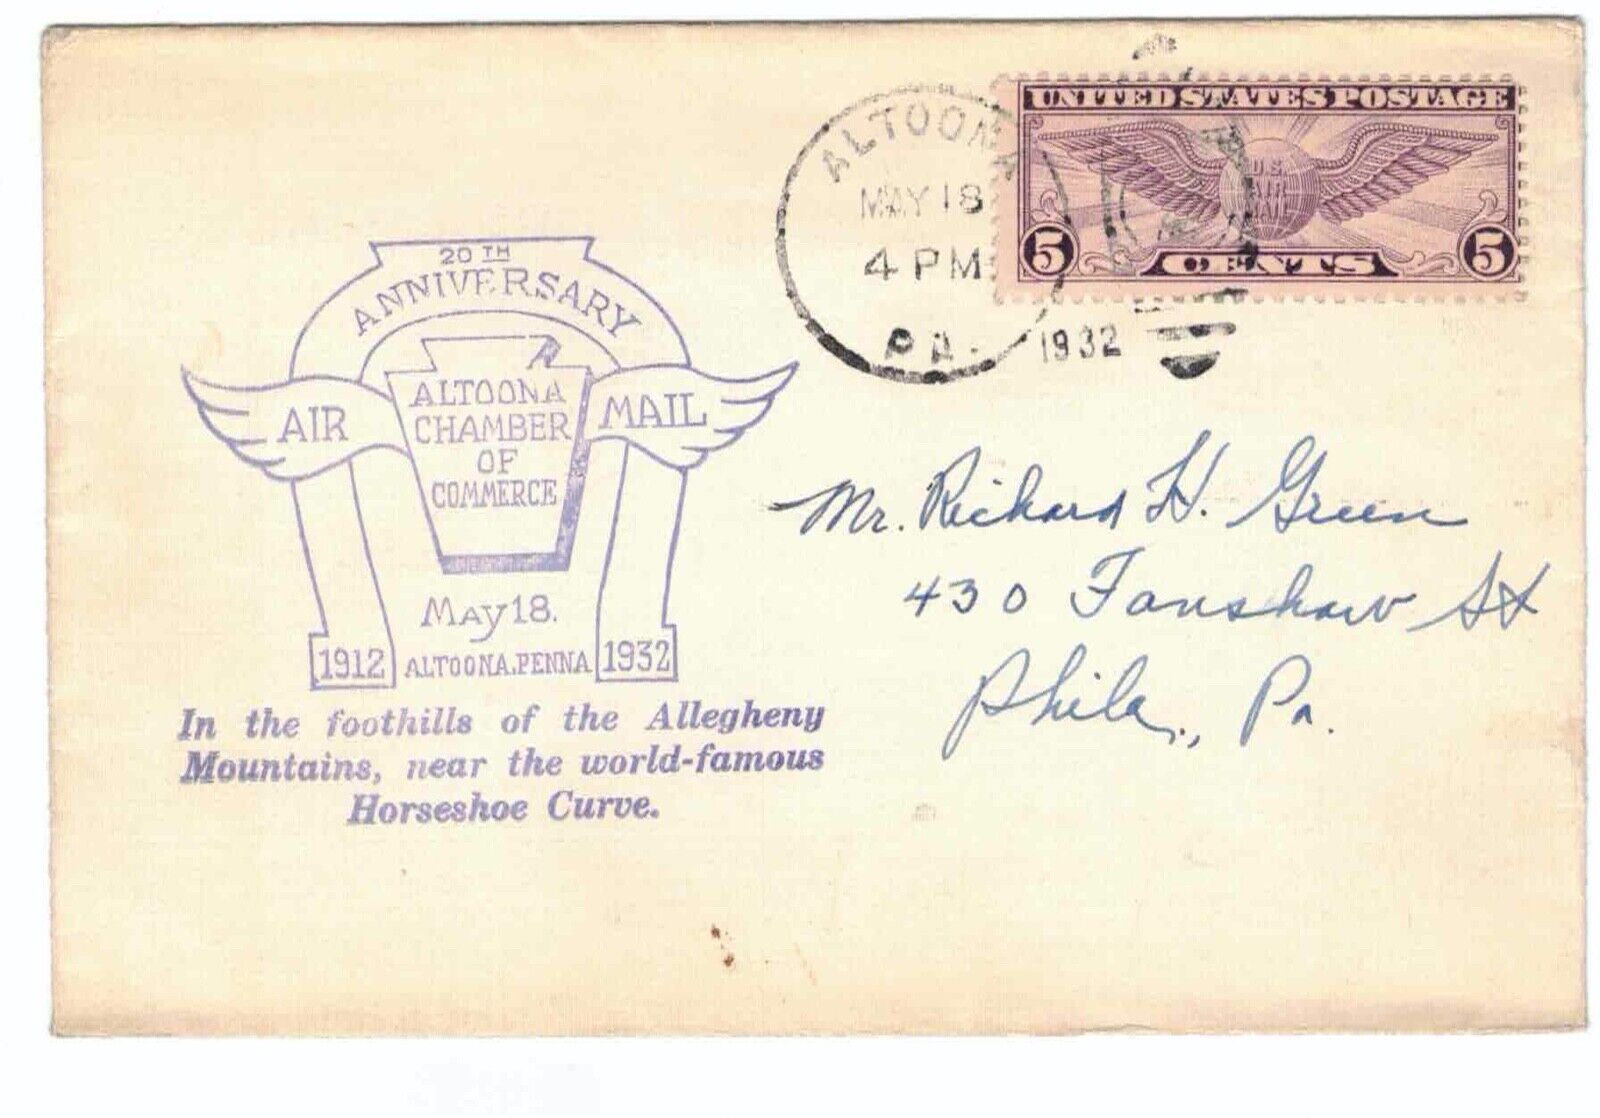 ALTOONA
MAY 18
4 PM
PA.
1932
UNITED STATES POSTAGE
U.S.
AIR
MAIL
5 CENTS 5
20TH
ANNIVERSARY
AIR MAIL
ALTOONA
CHAMBER
OF
COMMERCE
MAY 18.
1912 ALTOONA, PENNA 1932
In the foothills of the Allegheny
Mountains, near the world-famous
Horseshoe Curve.
Mr. Richard H. Green
430 Fanshaw St
Phila., Pa.